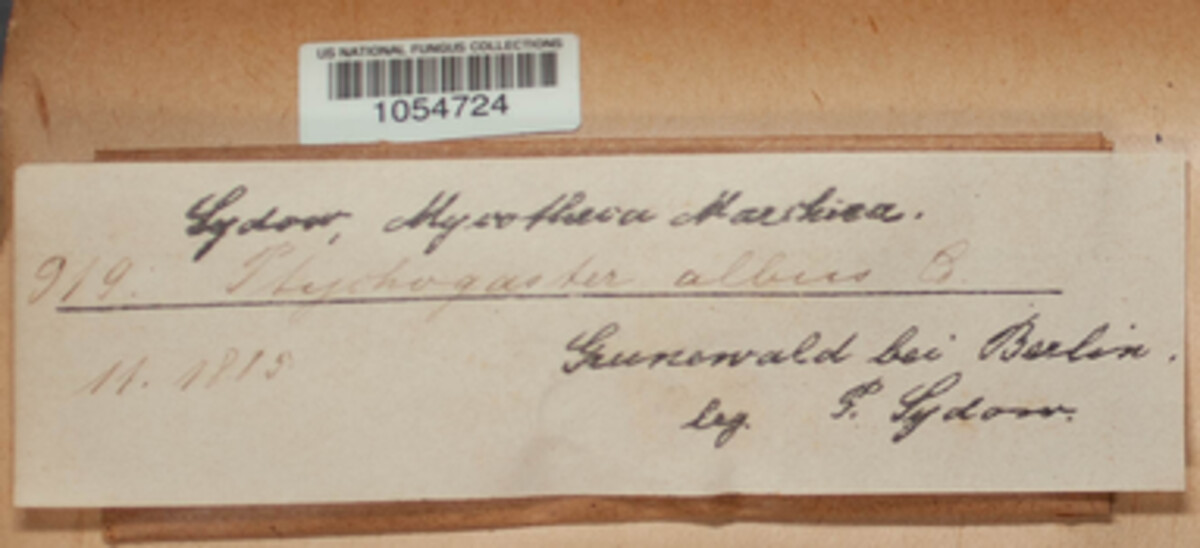 US NATIONAL FUNGUS COLLECTIONS
1054724
Sydow, Mycotheca Marchica.
919. Ptychogaster albus C.
11. 1815
Grunewald bei Berlin.
leg. P. Sydow.